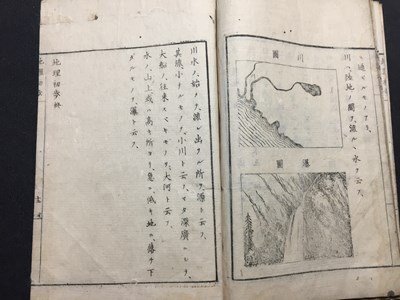 川ハ陸地ノ間ヲ流ルヽ水ヲ云フ、
川圖
瀑圖
川水ノ、始メテ、流レ出ヅル所ヲ、源ト云フ、
其廣小ナルモノヲ、小川ト云フ、マタ深廣ニシテ、
大船ノ、往來スベキモノヲ、大河ト云フ、
水ノ、山上或ハ高キ所ヨリ、急ニ低キ地ニ落チ下
ダルモノヲ、瀑ト云フ、
地理初歩終